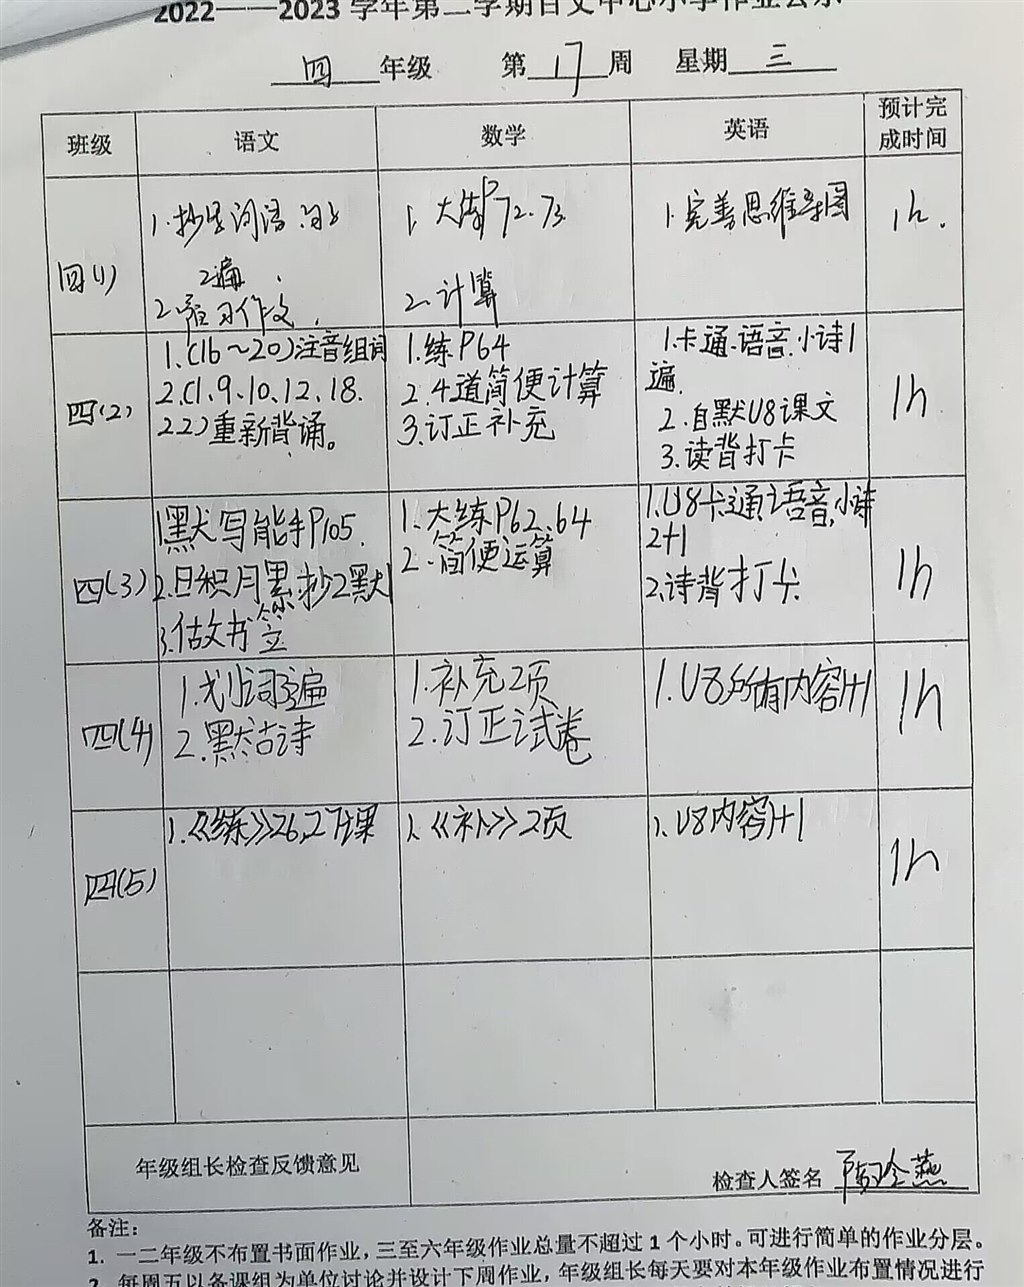 2022——2023 学年第二学期百文中心小学作业公示
四 年级 第 17 周 星期 三
班级 语文 数学 英语 预计完成时间
四(1)
1.抄写词语
2遍
2.预习作文.
1.大练P72.73
2.计算
1.完善思维导图
1h.
四(2)
1.(16~20)注音组词
2.(1.9.10.12.18.
22)重新背诵。
1.练P64
2.4道简便计算
3.订正补充
1.卡通.语音.小诗1
遍.
2.自默U8课文
3.读背打卡
1h
四(3)
1.默写能手P105.
2.日积月累抄2默1
3.做书签
1.大练P62、64
2.简便运算
1.U8卡通,语音,小诗
2+1
2.诗背打卡
1h
四(4)
1.划词3遍
2.默古诗
1.补充2页
2.订正试卷
1.U8所有内容1+1
1h
四(5)
1.《练》26,27课
1.《补》2页
1.U8内容1+1
1h
年级组长检查反馈意见
检查人签名
备注:
1. 一二年级不布置书面作业，三至六年级作业总量不超过 1 个小时。可进行简单的作业分层。
2. 每周五以备课组为单位讨论并设计下周作业，年级组长每天要对本年级作业布置情况进行